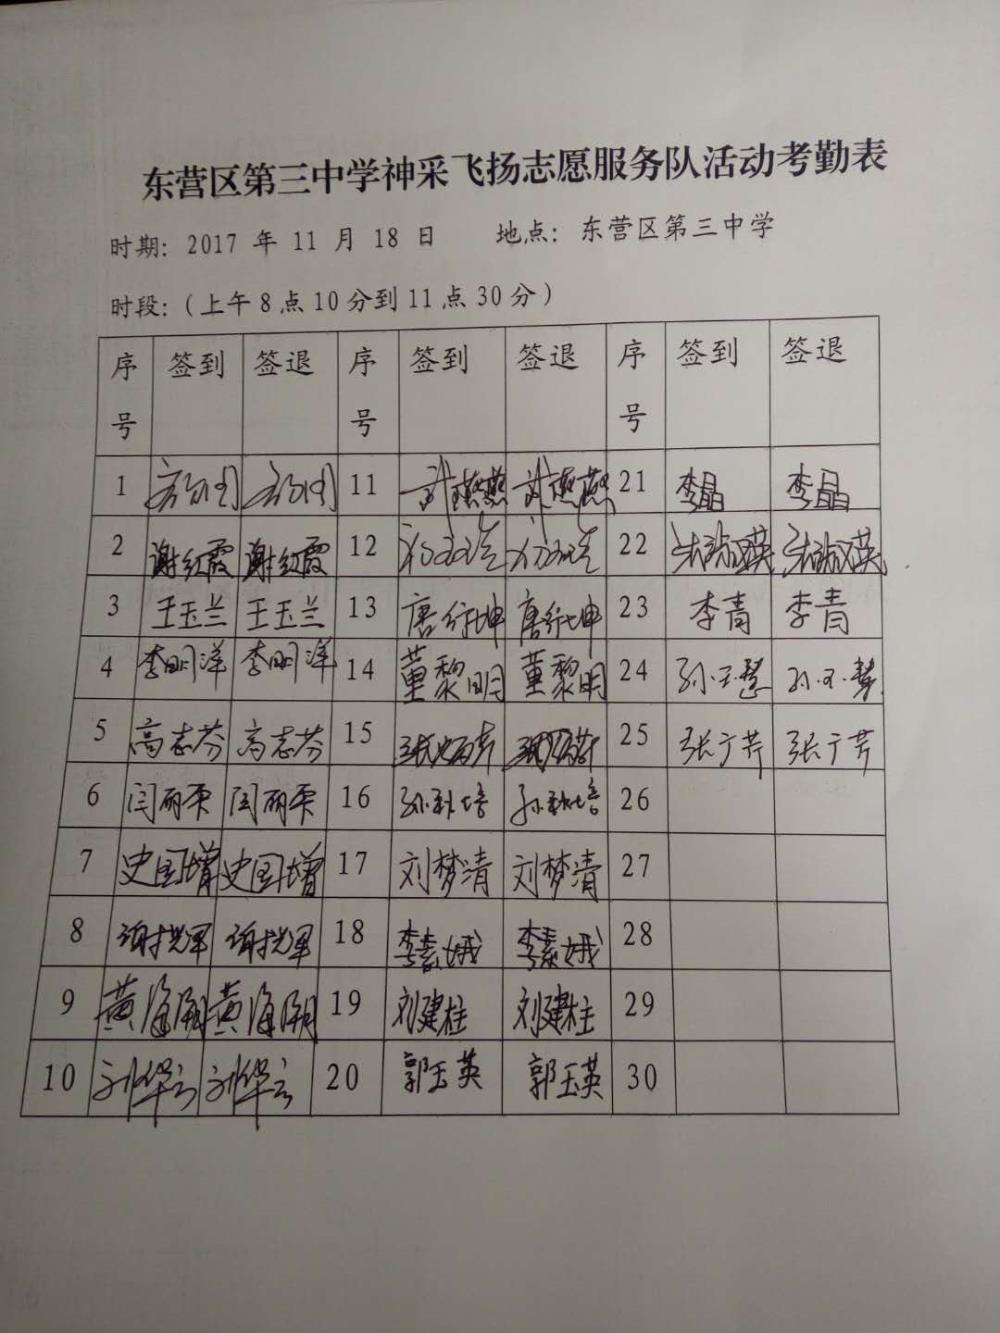 东营区第三中学神采飞扬志愿服务队活动考勤表
时期：2017 年 11 月 18 日 地点：东营区第三中学
时段：（上午8点10分到11点30分）
序号 签到 签退 序号 签到 签退 序号 签到 签退
1 11 21 李晶 李晶
2 谢红霞 谢红霞 12 22
3 王玉兰 王玉兰 13 唐行坤 唐行坤 23 李青 李青
4 李明洋 李明洋 14 董黎明 董黎明 24 孙玉慧 孙玉慧
5 高志芬 高志芬 15 25 张广芹 张广芹
6 闫丽霞 闫丽霞 16 孙秋培 孙秋培 26
7 史国增 史国增 17 刘梦清 刘梦清 27
8 18 李素娥 李素娥 28
9 黄海潮 黄海潮 19 刘建柱 刘建柱 29
10 刘华云 刘华云 20 郭玉英 郭玉英 30